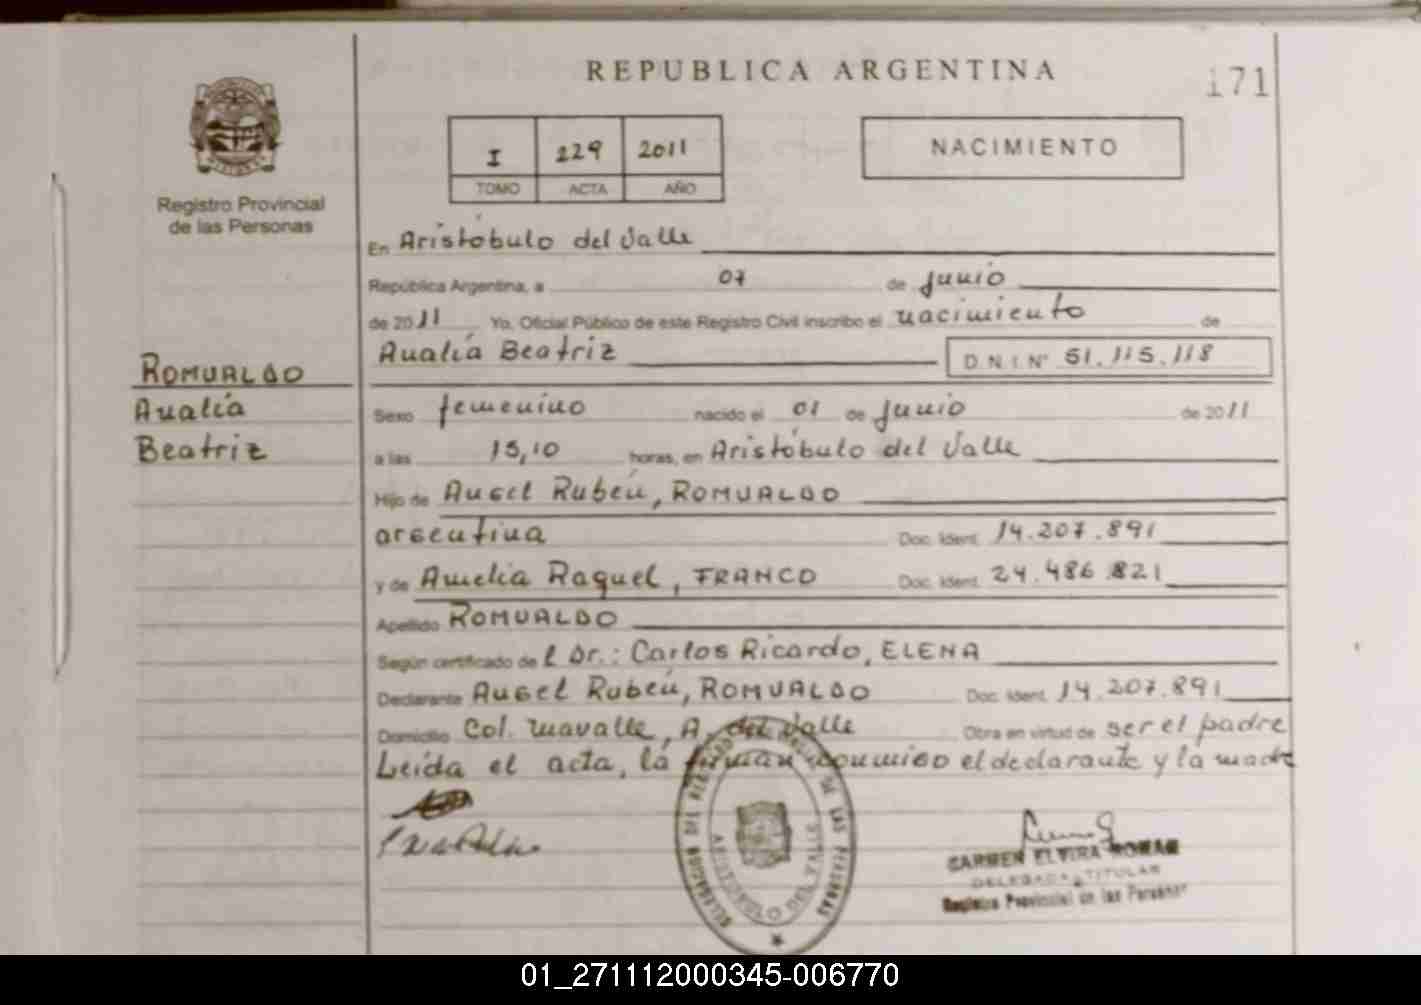 REPUBLICA ARGENTINA
171
Registro Provincial
de las Personas
I 229 2011
TOMO ACTA AÑO
NACIMIENTO
En Aristóbulo del Valle
República Argentina, a 07 de junio
de 2011 Yo, Oficial Público de este Registro Civil inscribo el nacimiento de
Analía Beatriz D.N.I.Nº 51.115.118
ROMUALDO
Analía
Beatriz
Sexo femenino nacido el 01 de junio de 2011
a las 15,10 horas, en Aristóbulo del Valle
Hijo de Angel Rubén, ROMUALDO
argentina Doc. Ident. 14.207.891
y de Amelia Raquel, FRANCO Doc. Ident. 24.486.821
Apellido ROMUALDO
Según certificado de l Dr.: Carlos Ricardo, ELENA
Declarante Angel Rubén, ROMUALDO Doc. Ident. 14.207.891
Domicilio Col. Mavalle, A. del Valle Obra en virtud de ser el padre
Leída el acta, la firman conmigo el declarante y la madre
DELEGACION DEL REGISTRO DE LAS PERSONAS
ARISTOBULO DEL VALLE
CARMEN ELVIRA ROMAN
DELEGADA TITULAR
Registro Provincial de las Personas
01_271112000345-006770